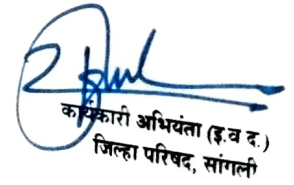 कार्यकारी अभियंता (इ.व द.)
जिल्हा परिषद, सांगली